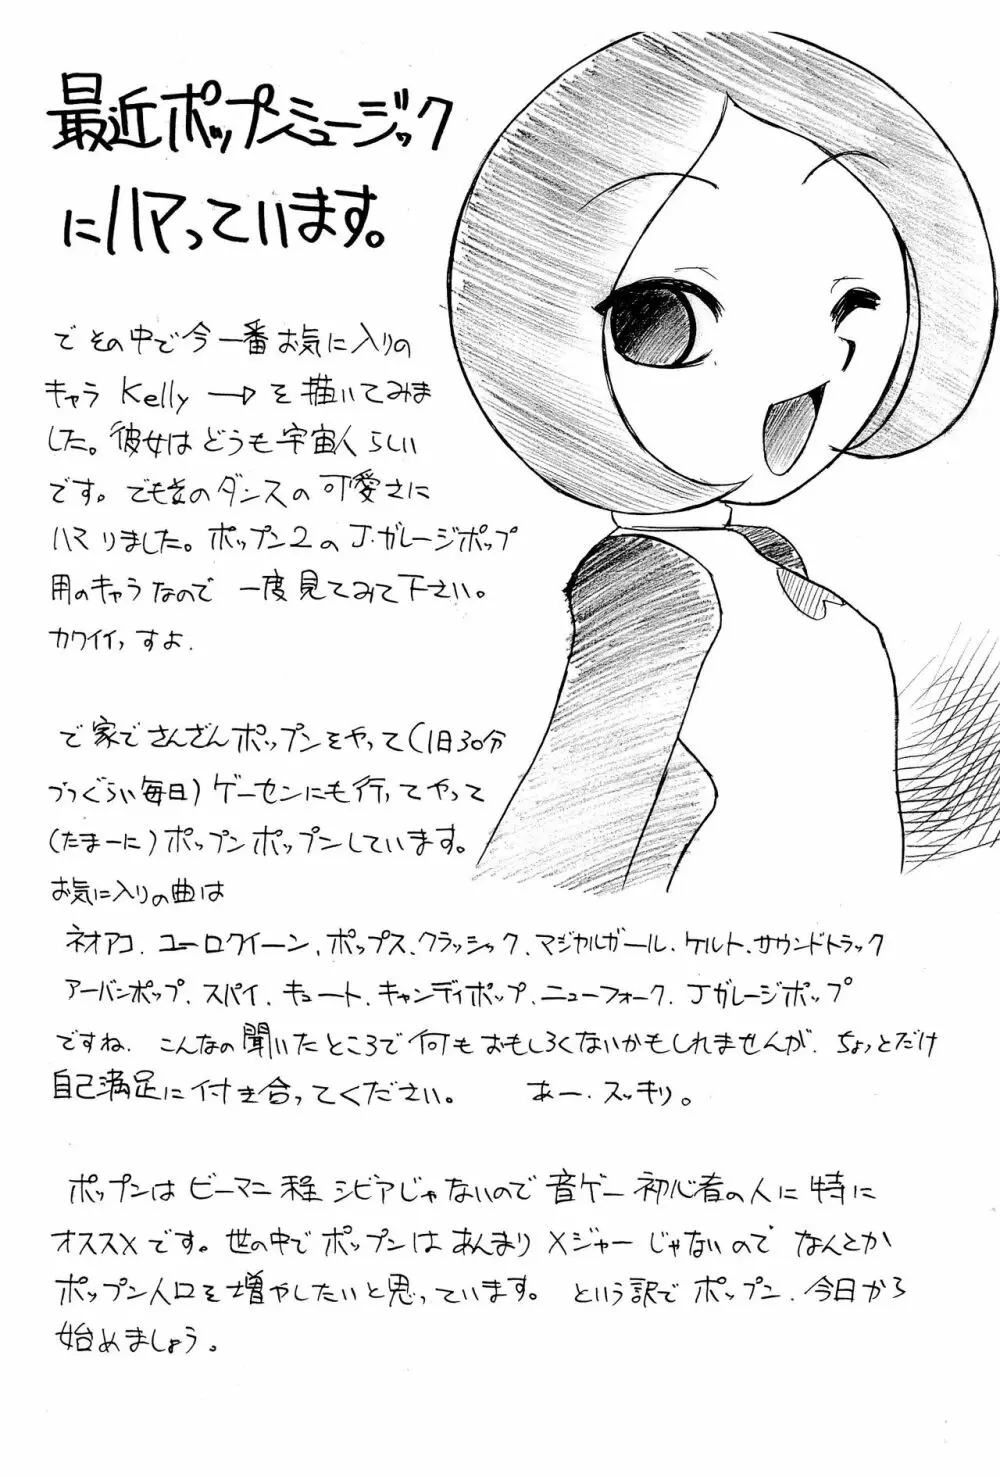 最近ポップンミュージック
にハマっています。
で その中で 今 一番 お気に入りの
キャラ Kelly → を 描いてみま
した。彼女は どうも 宇宙人 らしい
です。でもそのダンスの 可愛さに
ハマりました。ポップン2の J・ガレージポップ
用のキャラなので 一度 見てみて下さい。
カワイイっすよ.
で 家で さんざんポップンをやって(1日30分
づつぐらい毎日)ゲーセンにも行ってやって
(たまーに)ポップンポップンしています。
お気に入りの曲は
ネオアコ. ユーロクイーン. ポップス. クラッシック. マジカルガール. ケルト. サウンドトラック
アーバンポップ. スパイ. キュート. キャンディポップ. ニューフォーク. Jガレージポップ
ですね. こんなの 聞いたところで 何も おもしろくないかもしれませんが. ちょっとだけ
自己満足に 付き合ってください。 あー. スッキリ。
ポップンは ビーマニ 程 シビアじゃないので 音ゲー 初心者の人に 特に
オススメです。世の中で ポップンは あんまり メジャーじゃないので なんとか
ポップン人口を増やしたいと思っています。 という訳で ポップン. 今日から
始めましょう。